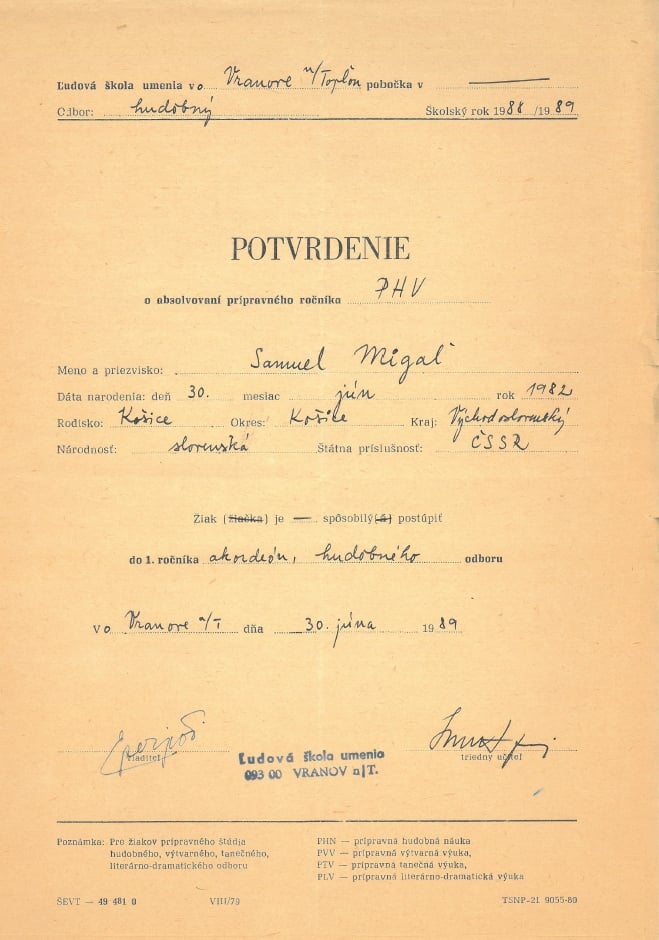 Ľudová škola umenia vo Vranove n/Topľou pobočka v
Odbor: hudobný Školský rok 1988/1989
POTVRDENIE
o absolvovaní prípravného ročníka PHV
Meno a priezvisko: Samuel Migaľ
Dáta narodenia: deň 30. mesiac jún rok 1982
Rodisko: Košice Okres: Košice Kraj: Východoslovenský
Národnosť: slovenská Štátna príslušnosť: ČSSR
Žiak (žiačka) je — spôsobilý(á) postúpiť
do 1. ročníka akordeón, hudobného odboru
Vo Vranove n/T dňa 30. júna 1989
riaditeľ triedny učiteľ
Ľudová škola umenia
093 00 VRANOV n|T.
Poznámka: Pre žiakov prípravného štúdia
hudobného, výtvarného, tanečného,
literárno-dramatického odboru
PHN — prípravná hudobná náuka
PVV — prípravná výtvarná výuka,
PTV — prípravná tanečná výuka,
PLV — prípravná literárno-dramatická výuka
ŠEVT — 49 481 0 VIII/79 TSNP-21 9055-80